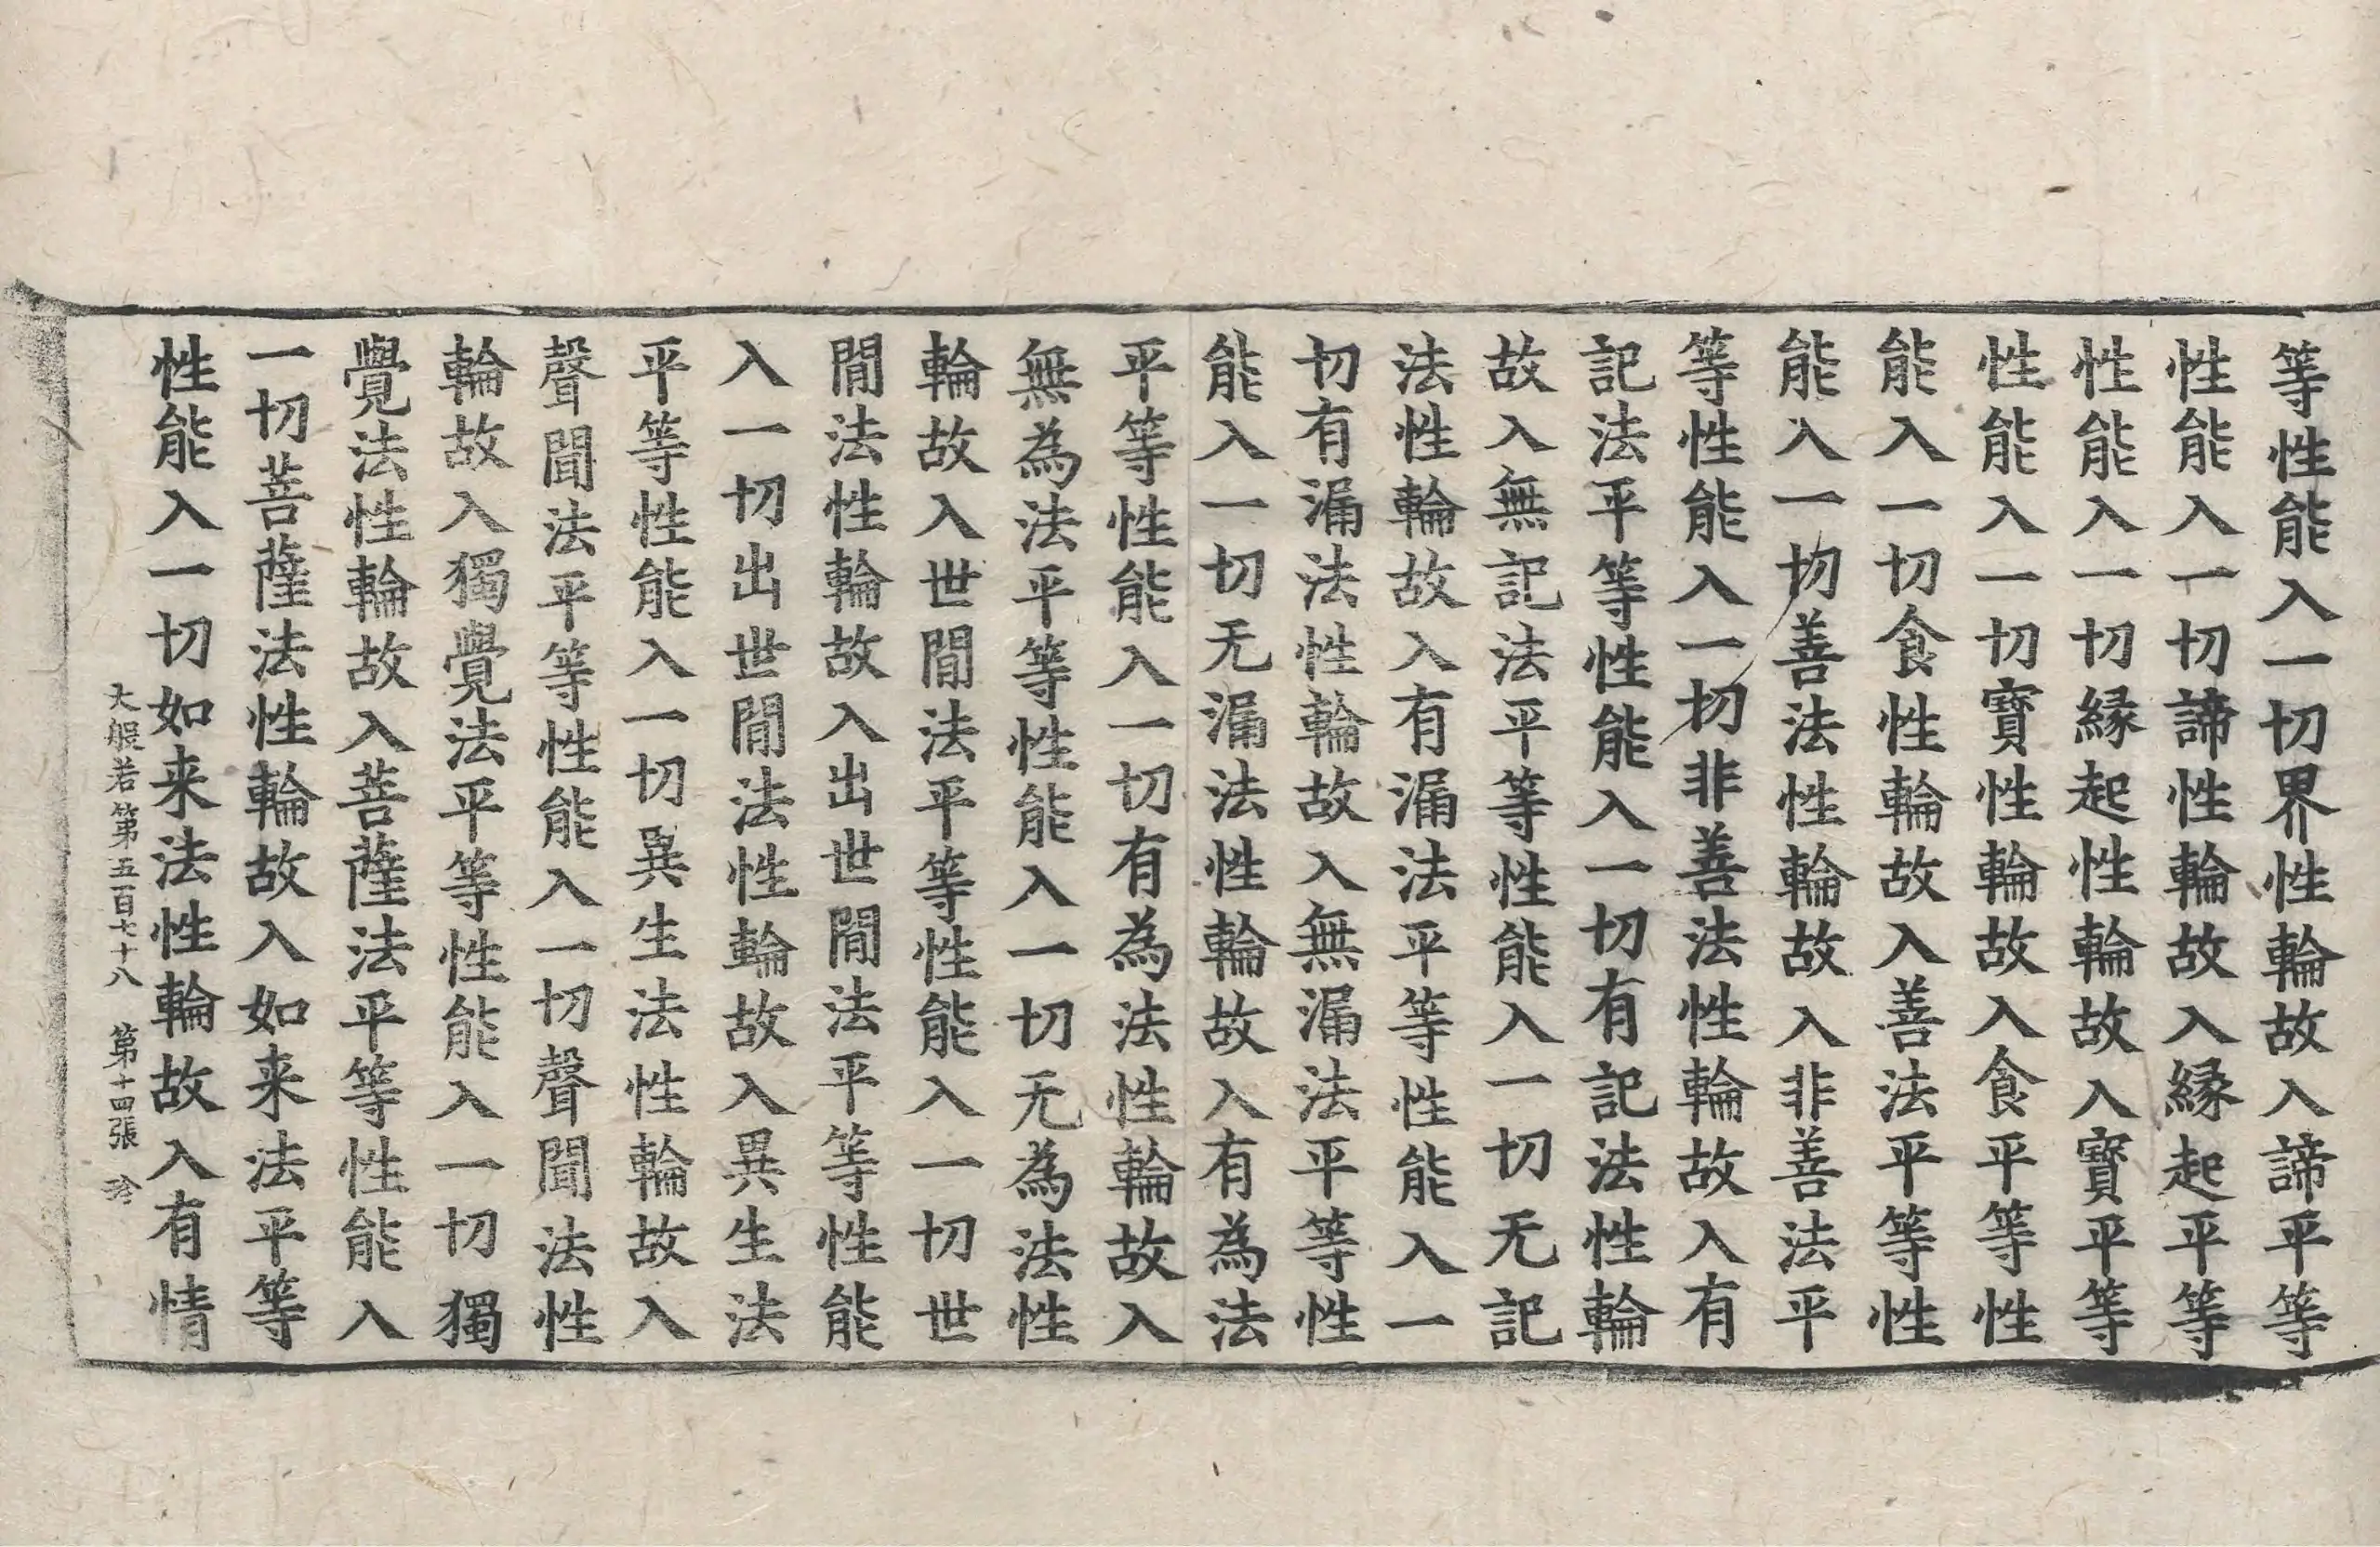 等性能入一切界性輪故入諦平等
性能入一切諦性輪故入縁起平等
性能入一切縁起性輪故入寶平等
性能入一切寶性輪故入食平等性
能入一切食性輪故入善法平等性
能入一切善法性輪故入非善法平
等性能入一切非善法性輪故入有
記法平等性能入一切有記法性輪
故入無記法平等性能入一切无記
法性輪故入有漏法平等性能入一
切有漏法性輪故入無漏法平等性
能入一切无漏法性輪故入有為法
平等性能入一切有為法性輪故入
無為法平等性能入一切无為法性
輪故入世間法平等性能入一切世
間法性輪故入出世間法平等性能
入一切出世間法性輪故入異生法
平等性能入一切異生法性輪故入
聲聞法平等性能入一切聲聞法性
輪故入獨覺法平等性能入一切獨
覺法性輪故入菩薩法平等性能入
一切菩薩法性輪故入如来法平等
性能入一切如来法性輪故入有情
大般若第五百七十八 第十四張